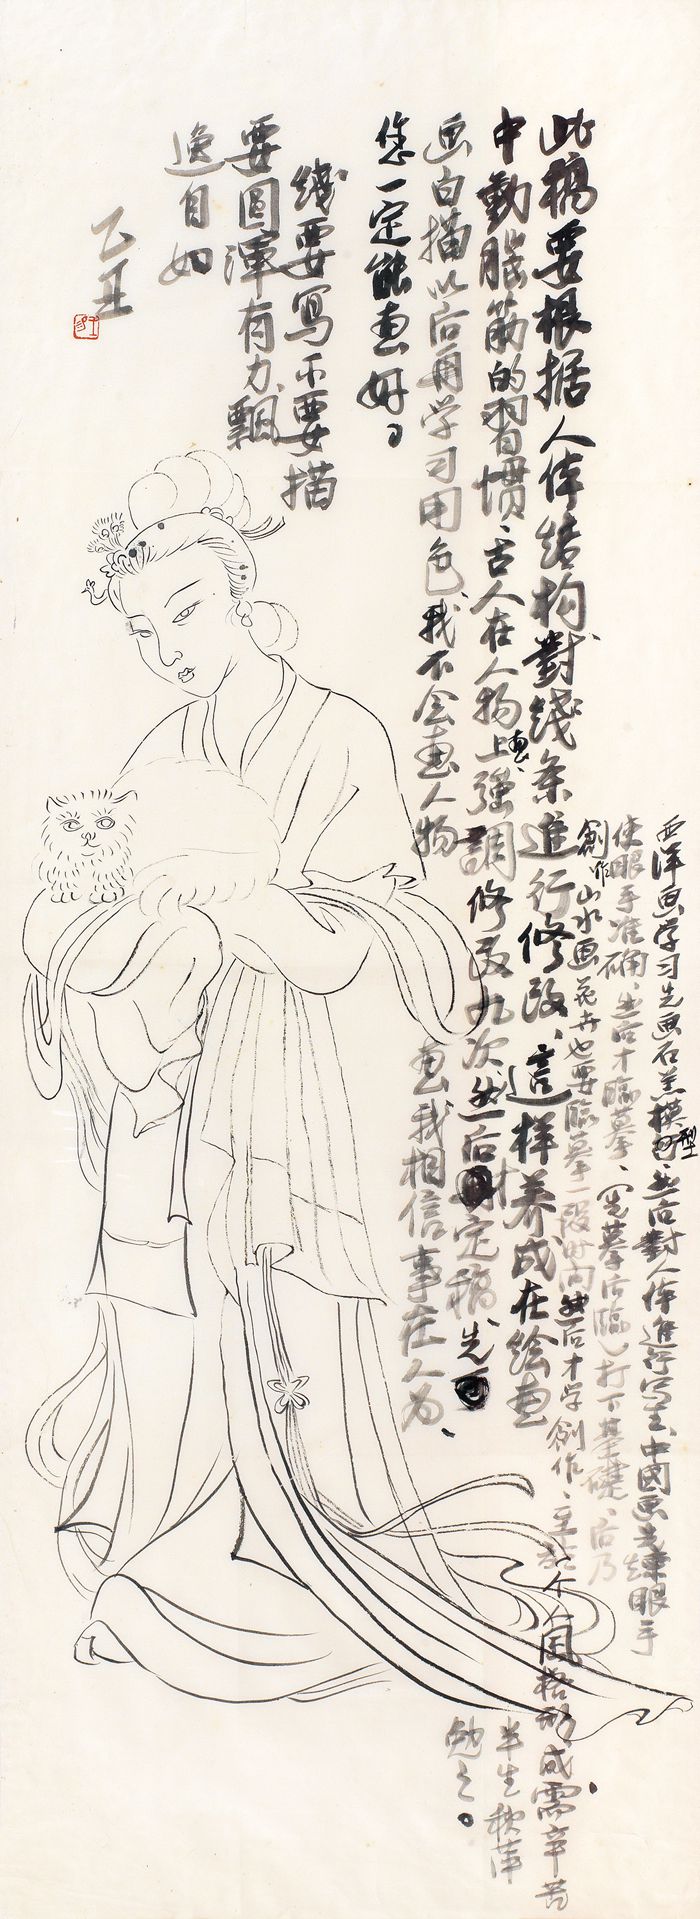 此稿要根据人体结构對线条進行修改、這样养成在绘画
中動脑筋的習惯、古人在人物画上强調修改九次然后才定稿、先
画白描以后再学习用色、我不会画人物画我相信事在人为、
您一定能画好。
线要写不要描
要圆渾有力、飄
逸自如
乙丑
西洋画学习先画石羔模型、然后對人体進行写生、中國画先练眼手
使眼手准确、然后才臨摹、(先摹后臨)打下基礎、后乃
創作山水画花卉也要臨摹一段时间然后才学創作、至於个人風格形成需辛苦
半生 秋萍
勉之。